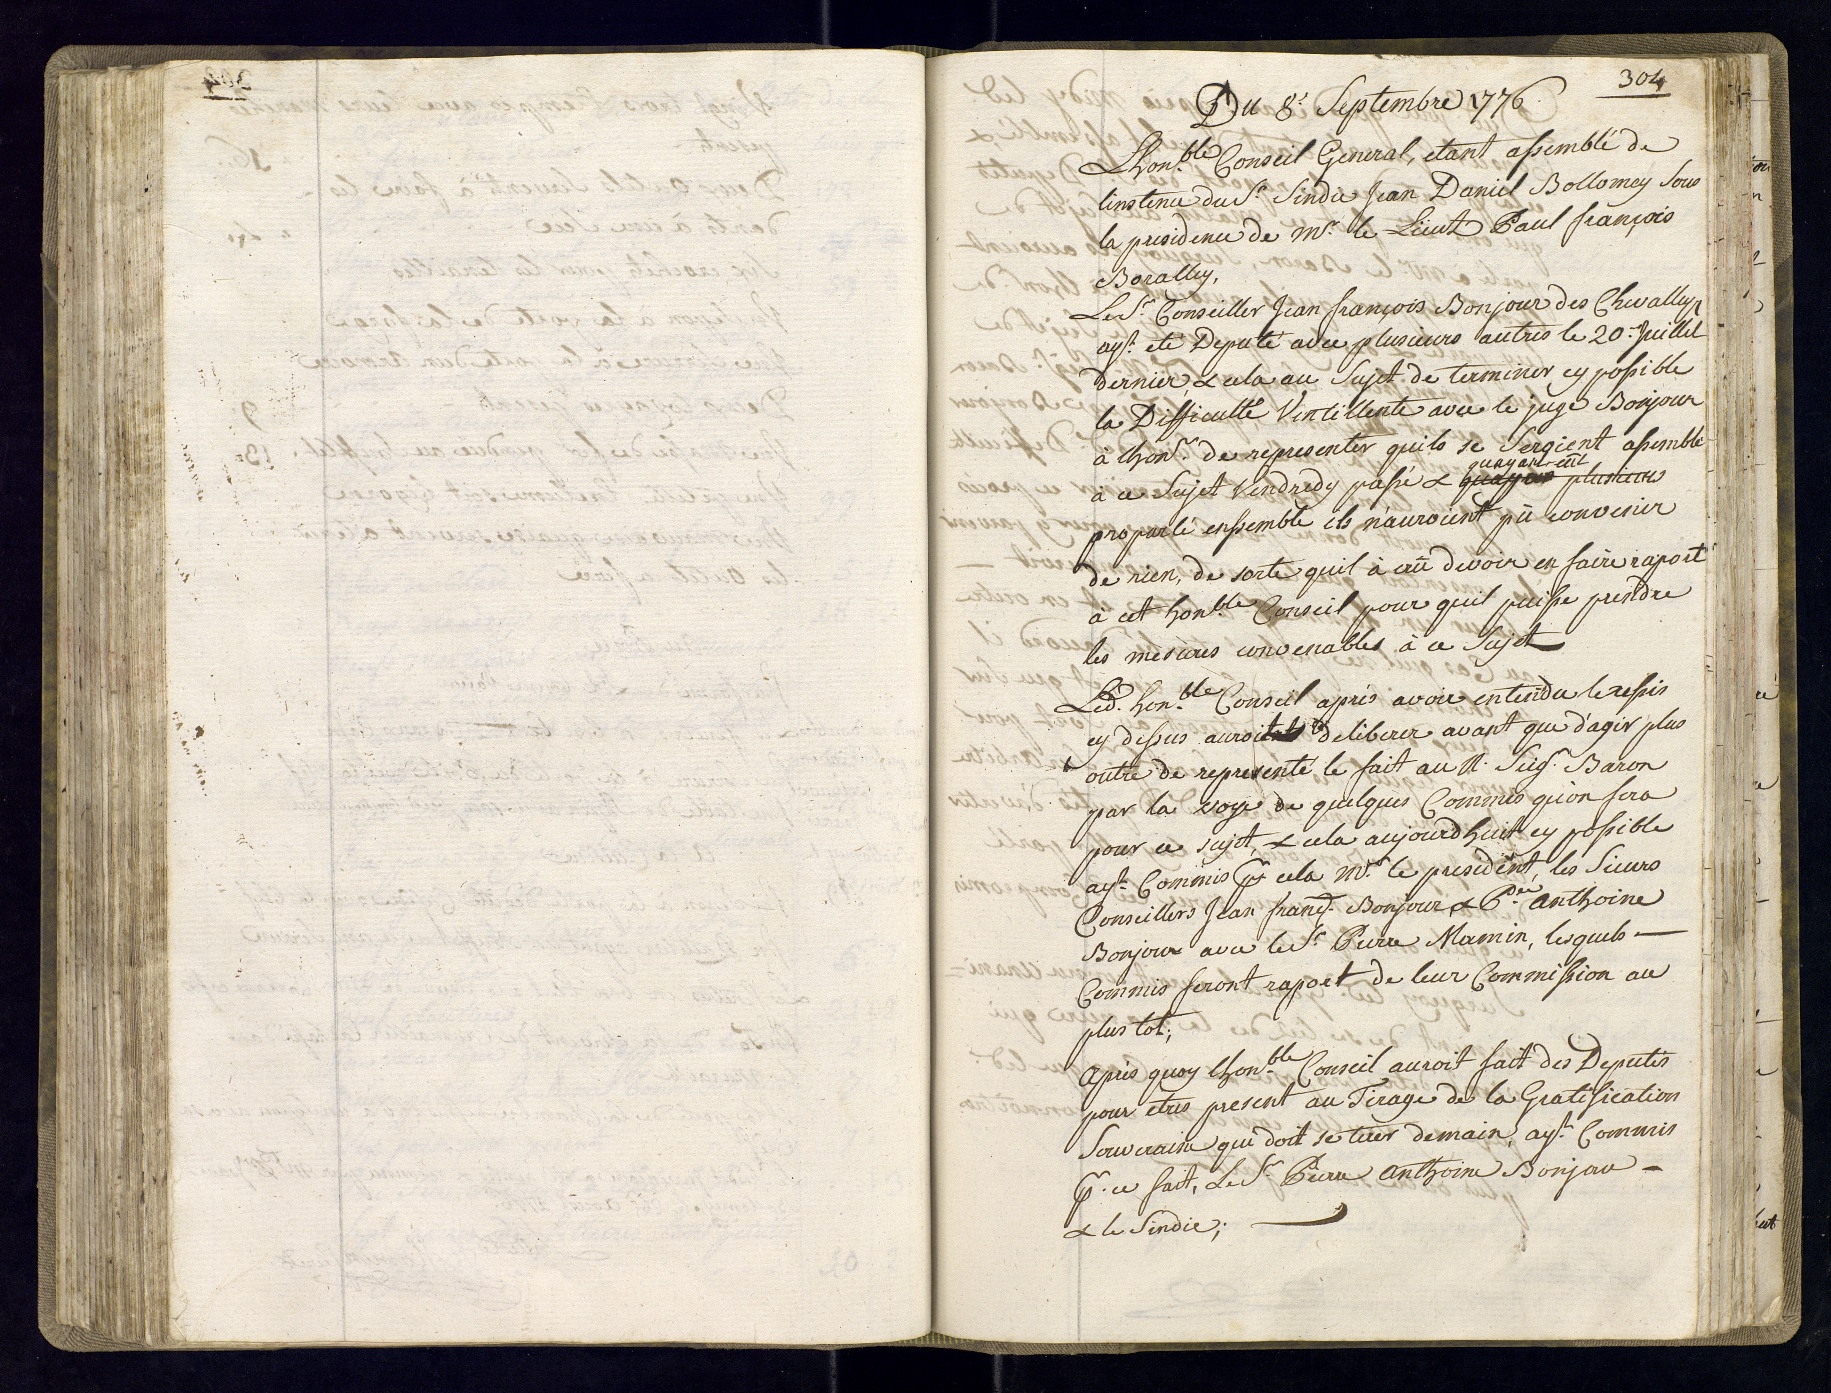 304
Du 8.e Septembre 1776
Lhon.ble Conseil General, etant assemblé de
linstence du S.r Sindic Jean Daniel Bollomey sous
la presidence de M.r le Lieut Paul françois
Boralley,
Le S.r Conseiller Jean françois Bonjour des Chevalleyr
ay.t eté Deputé avec plusieurs autres le 20.e Juillet
dernier & cela au Sujet de terminer cy possible
la Difficulté Ventillente avec le juge Bonjour
à lhon.r de representer quils se Seroient assemblé
à ce Sujet Vendredy passé & quayant eut
proparlé enssemble ils n'auroient pû convenir
de rien, de sorte quil à crû devoir en faire raport
à cet hon.ble Conseil pour quil puisse prendre
les mésures convenables à ce Sujet
Led. hon.ble Conseil aprés avoir entendu le
cy dessus auroit deliberer avant que d'agir plus
outre de representé le fait au N. Seig.r Baron
par la voye de quelques Commis qu'on fera
pour ce sujet, & cela aujourdhuit cy possible
ay.t Commis p.r cela M.r le president, les Sieurs
Conseillers Jean franç.s Bonjour, & P.re Anthoine
Bonjour avec le S.r Pierre Mamin, lesquels
Commis feront raport de leur Commission au
plus tot;
Aprés quoy lhon.ble Conseil auroit fait des Deputés
pour etres present au Tirage de la Gratification
Souveraine qui doit se tirer demain, ay.t Commis
p.r ce fait, Le S.r Pierre Anthoine Bonjour
& le Sindic;